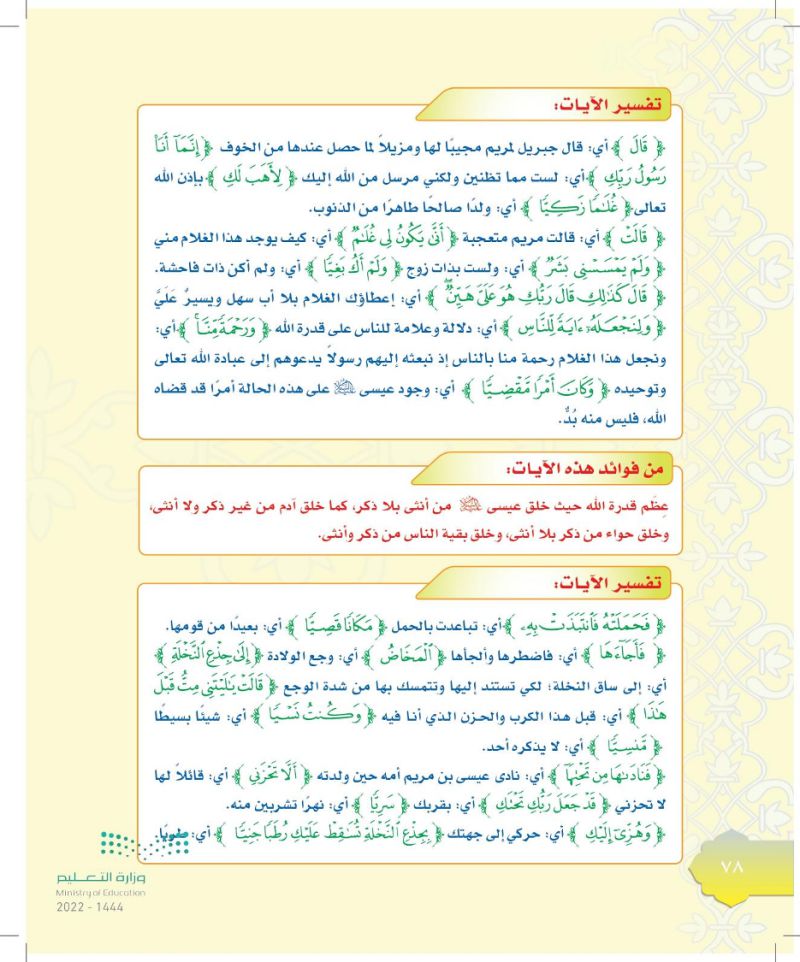 تفسير الآيات:
﴿ قَالَ ﴾ أي: قال جبريل لمريم مجيبًا لها ومزيلاً لما حصل عندها من الخوف ﴿ إِنَّمَآ أَنَا۠
رَسُولُ رَبِّكِ ﴾ أي: لست مما تظنين ولكني مرسل من الله إليك ﴿ لِأَهَبَ لَكِ ﴾ بإذن الله
تعالى ﴿ غُلَٰمًا زَكِيًّا ﴾ أي: ولدًا صالحًا طاهرًا من الذنوب.
﴿ قَالَتْ ﴾ أي: قالت مريم متعجبة ﴿ أَنَّىٰ يَكُونُ لِي غُلَٰمٌ ﴾ أي: كيف يوجد هذا الغلام مني
﴿ وَلَمْ يَمْسَسْنِي بَشَرٌ ﴾ أي: ولست بذات زوج ﴿ وَلَمْ أَكُ بَغِيًّا ﴾ أي: ولم أكن ذات فاحشة.
﴿ قَالَ كَذَٰلِكِ قَالَ رَبُّكِ هُوَ عَلَىَّ هَيِّنٌ ﴾ أي: إعطاؤك الغلام بلا أب سهل ويسيرٌ عَلَيَّ
﴿ وَلِنَجْعَلَهُۥٓ ءَايَةً لِّلنَّاسِ ﴾ أي: دلالة وعلامة للناس على قدرة الله ﴿ وَرَحْمَةً مِّنَّا ﴾ أي:
ونجعل هذا الغلام رحمة منا بالناس إذ نبعثه إليهم رسولاً يدعوهم إلى عبادة الله تعالى
وتوحيده ﴿ وَكَانَ أَمْرًا مَّقْضِيًّا ﴾ أي: وجود عيسى عليه السلام على هذه الحالة أمرًا قد قضاه
الله، فليس منه بُدٌّ.
من فوائد هذه الآيات:
عِظَم قدرة الله حيث خلق عيسى عليه السلام من أنثى بلا ذكر، كما خلق آدم من غير ذكر ولا أنثى،
وخلق حواء من ذكر بلا أنثى، وخلق بقية الناس من ذكر وأنثى.
تفسير الآيات:
﴿ فَحَمَلَتْهُ فَٱنتَبَذَتْ بِهِۦ ﴾ أي: تباعدت بالحمل ﴿ مَكَانًا قَصِيًّا ﴾ أي: بعيدًا من قومها.
﴿ فَأَجَآءَهَا ﴾ أي: فاضطرها وألجأها ﴿ ٱلْمَخَاضُ ﴾ أي: وجع الولادة ﴿ إِلَىٰ جِذْعِ ٱلنَّخْلَةِ ﴾
أي: إلى ساق النخلة؛ لكي تستند إليها وتتمسك بها من شدة الوجع ﴿ قَالَتْ يَٰلَيْتَنِي مِتُّ قَبْلَ
هَٰذَا ﴾ أي: قبل هذا الكرب والحزن الذي أنا فيه ﴿ وَكُنتُ نَسْيًا ﴾ أي: شيئًا بسيطًا
﴿ مَّنسِيًّا ﴾ أي: لا يذكره أحد.
﴿ فَنَادَىٰهَا مِن تَحْتِهَآ ﴾ أي: نادى عيسى بن مريم أمه حين ولدته ﴿ أَلَّا تَحْزَنِي ﴾ أي: قائلاً لها
لا تحزني ﴿ قَدْ جَعَلَ رَبُّكِ تَحْتَكِ ﴾ أي: بقربك ﴿ سَرِيًّا ﴾ أي: نهرًا تشربين منه.
﴿ وَهُزِّىٓ إِلَيْكِ ﴾ أي: حركي إلى جهتك ﴿ بِجِذْعِ ٱلنَّخْلَةِ تُسَٰقِطْ عَلَيْكِ رُطَبًا جَنِيًّا ﴾ أي: طريًا.
٧٨
وزارة التعليم
Ministry of Education
2022 - 1444